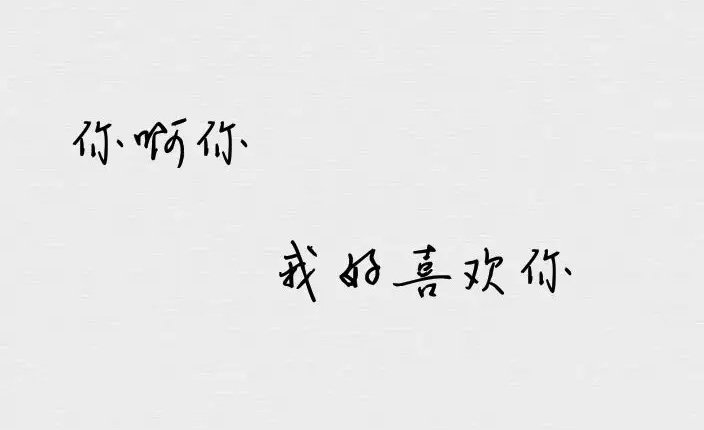 你啊你
我好喜欢你